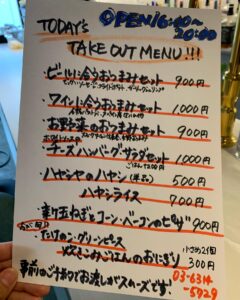 TODAY's OPEN 16:00~20:00
TAKE OUT MENU!!!
・ビールに合うおつまみセット 900円
・ワインに合うおつまみセット 1000円
・お野菜のおつまみセット 900円
・チーズハンバーグサラダセット 1000円
・ハヤシヤのハヤシ 500円
ハヤシライス 700円
・新玉ねぎとコーン・ベーコンのピザ 900円
・たけのこ・グリーンピース
炊きこみごはんのおにぎり 小さめ2個 300円
事前のご予約でお渡しがスムーズです。 03-6314-5729